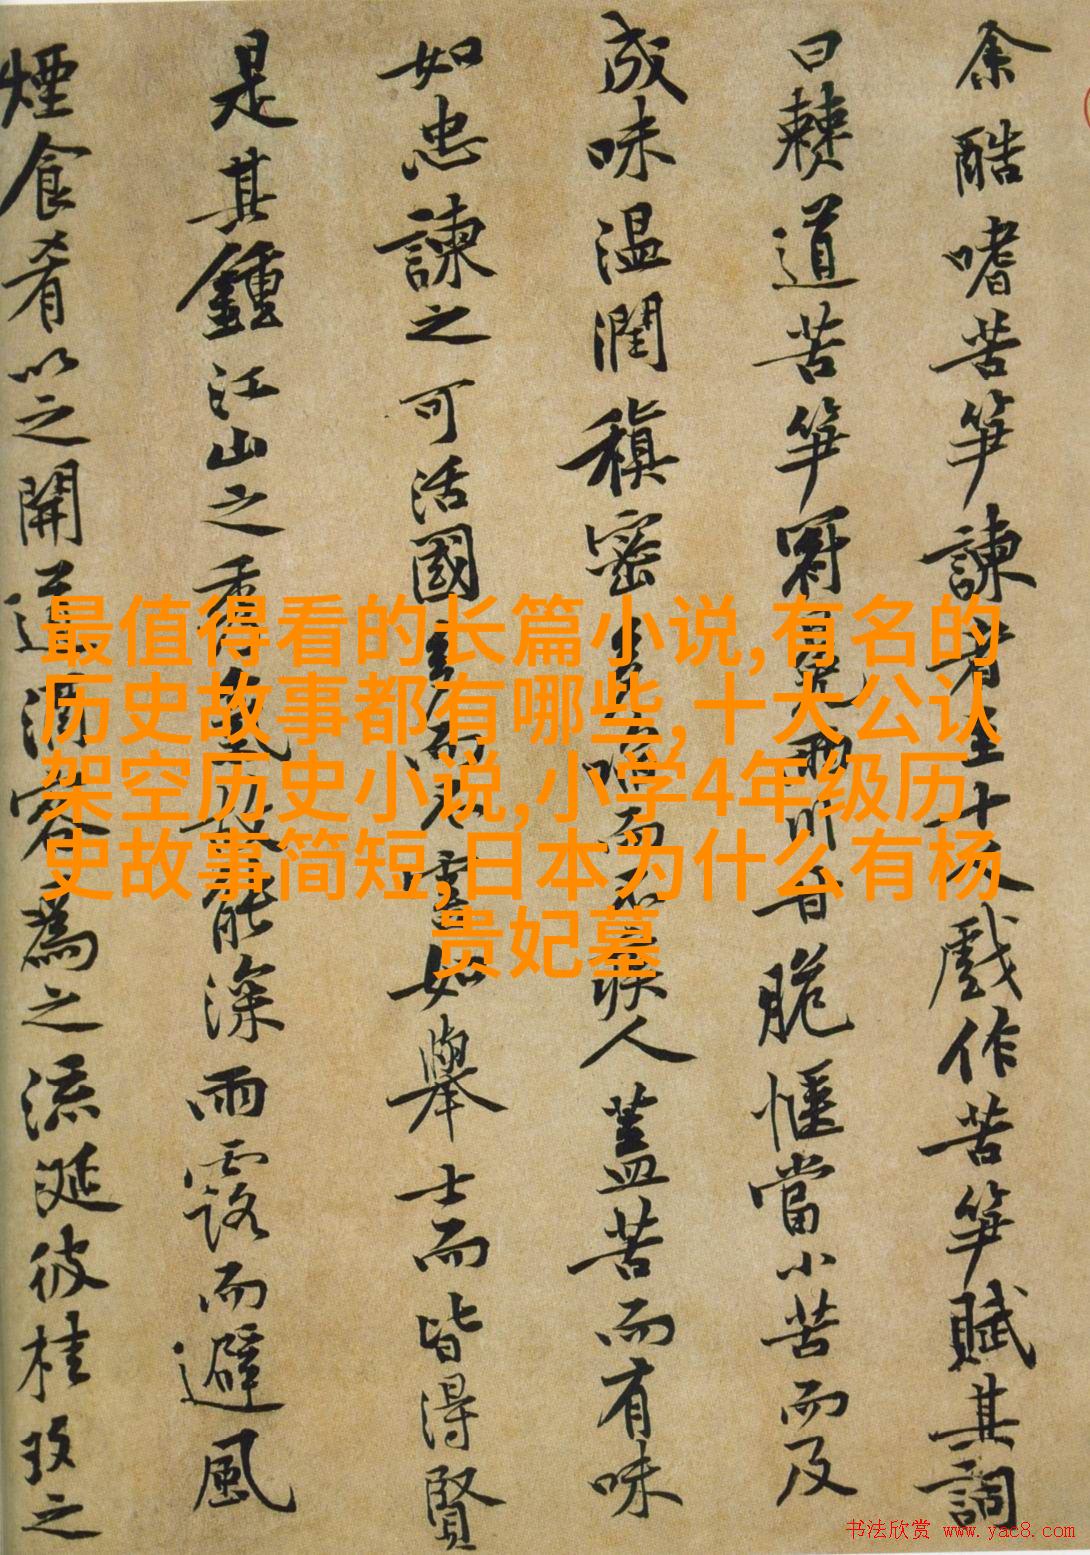 余酷嗜苦笋諫者至十人戲作苦笋賦其詞
曰僰道苦笋冠冕兩川甘脆愜當小苦而及
成味温潤稹密多啗而不疾人蓋苦而有味
如忠諫之可活國多而不害如舉士而皆得賢
是其鍾江山之秀氣故能深雨露而避風
煙食肴以之開道酒客為之流涎彼桂玫之
最值得看的长篇小说,有名的
历史故事都有哪些,十大公认
架空历史小说,小学4年级历
史故事简短,日本为什么有杨
贵妃墓
书法欣赏 www.yac8.com